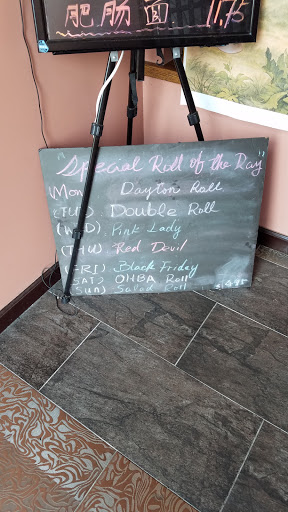 肥肠面 11.75
"Special Roll of the Day"
Mon Dayton Roll
(TUE) Double Roll
(WED) Pink Lady
(THU) Red Devil
(FRI) Black Friday
(SAT) OHBA Roll
(SUN) Salad Roll 14.95